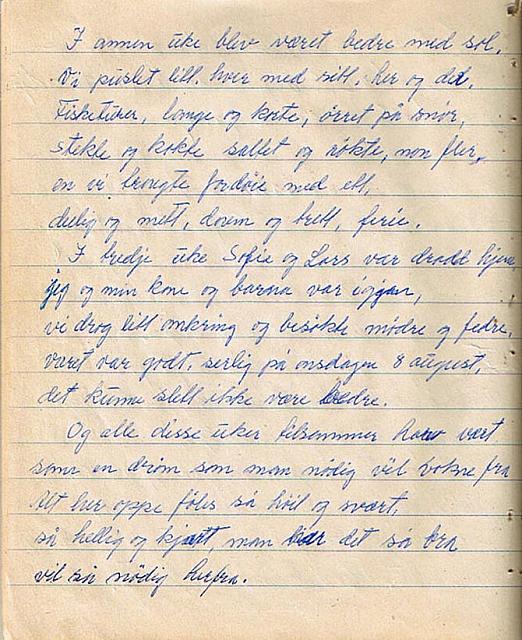 I annen uke blev været bedre med sol,
Vi puslet litt, hver med sitt, her og det.
Fisketurer, lange og korte, ørret på snør,
stekte og kokte saltet og røkte, mon fler,
en vi trengte fordøie med ett,
deilig og mett, doven og trett, ferie.
I tredje uke Sofie og Lars var dradd hjem,
jeg og min kone og barna var igjan,
vi drog litt omkring og besøkte mødre og fedre,
været var godt, serlig på onsdagen 8 august,
det kunne slett ikke være bedre.
Og alle disse uker tilsammer har vært
som en drøm som man nødig vil vokne fra
Alt her oppe føles så høit og svært,
så hellig og kjært, man har det så bra
vil så nødig herfra.